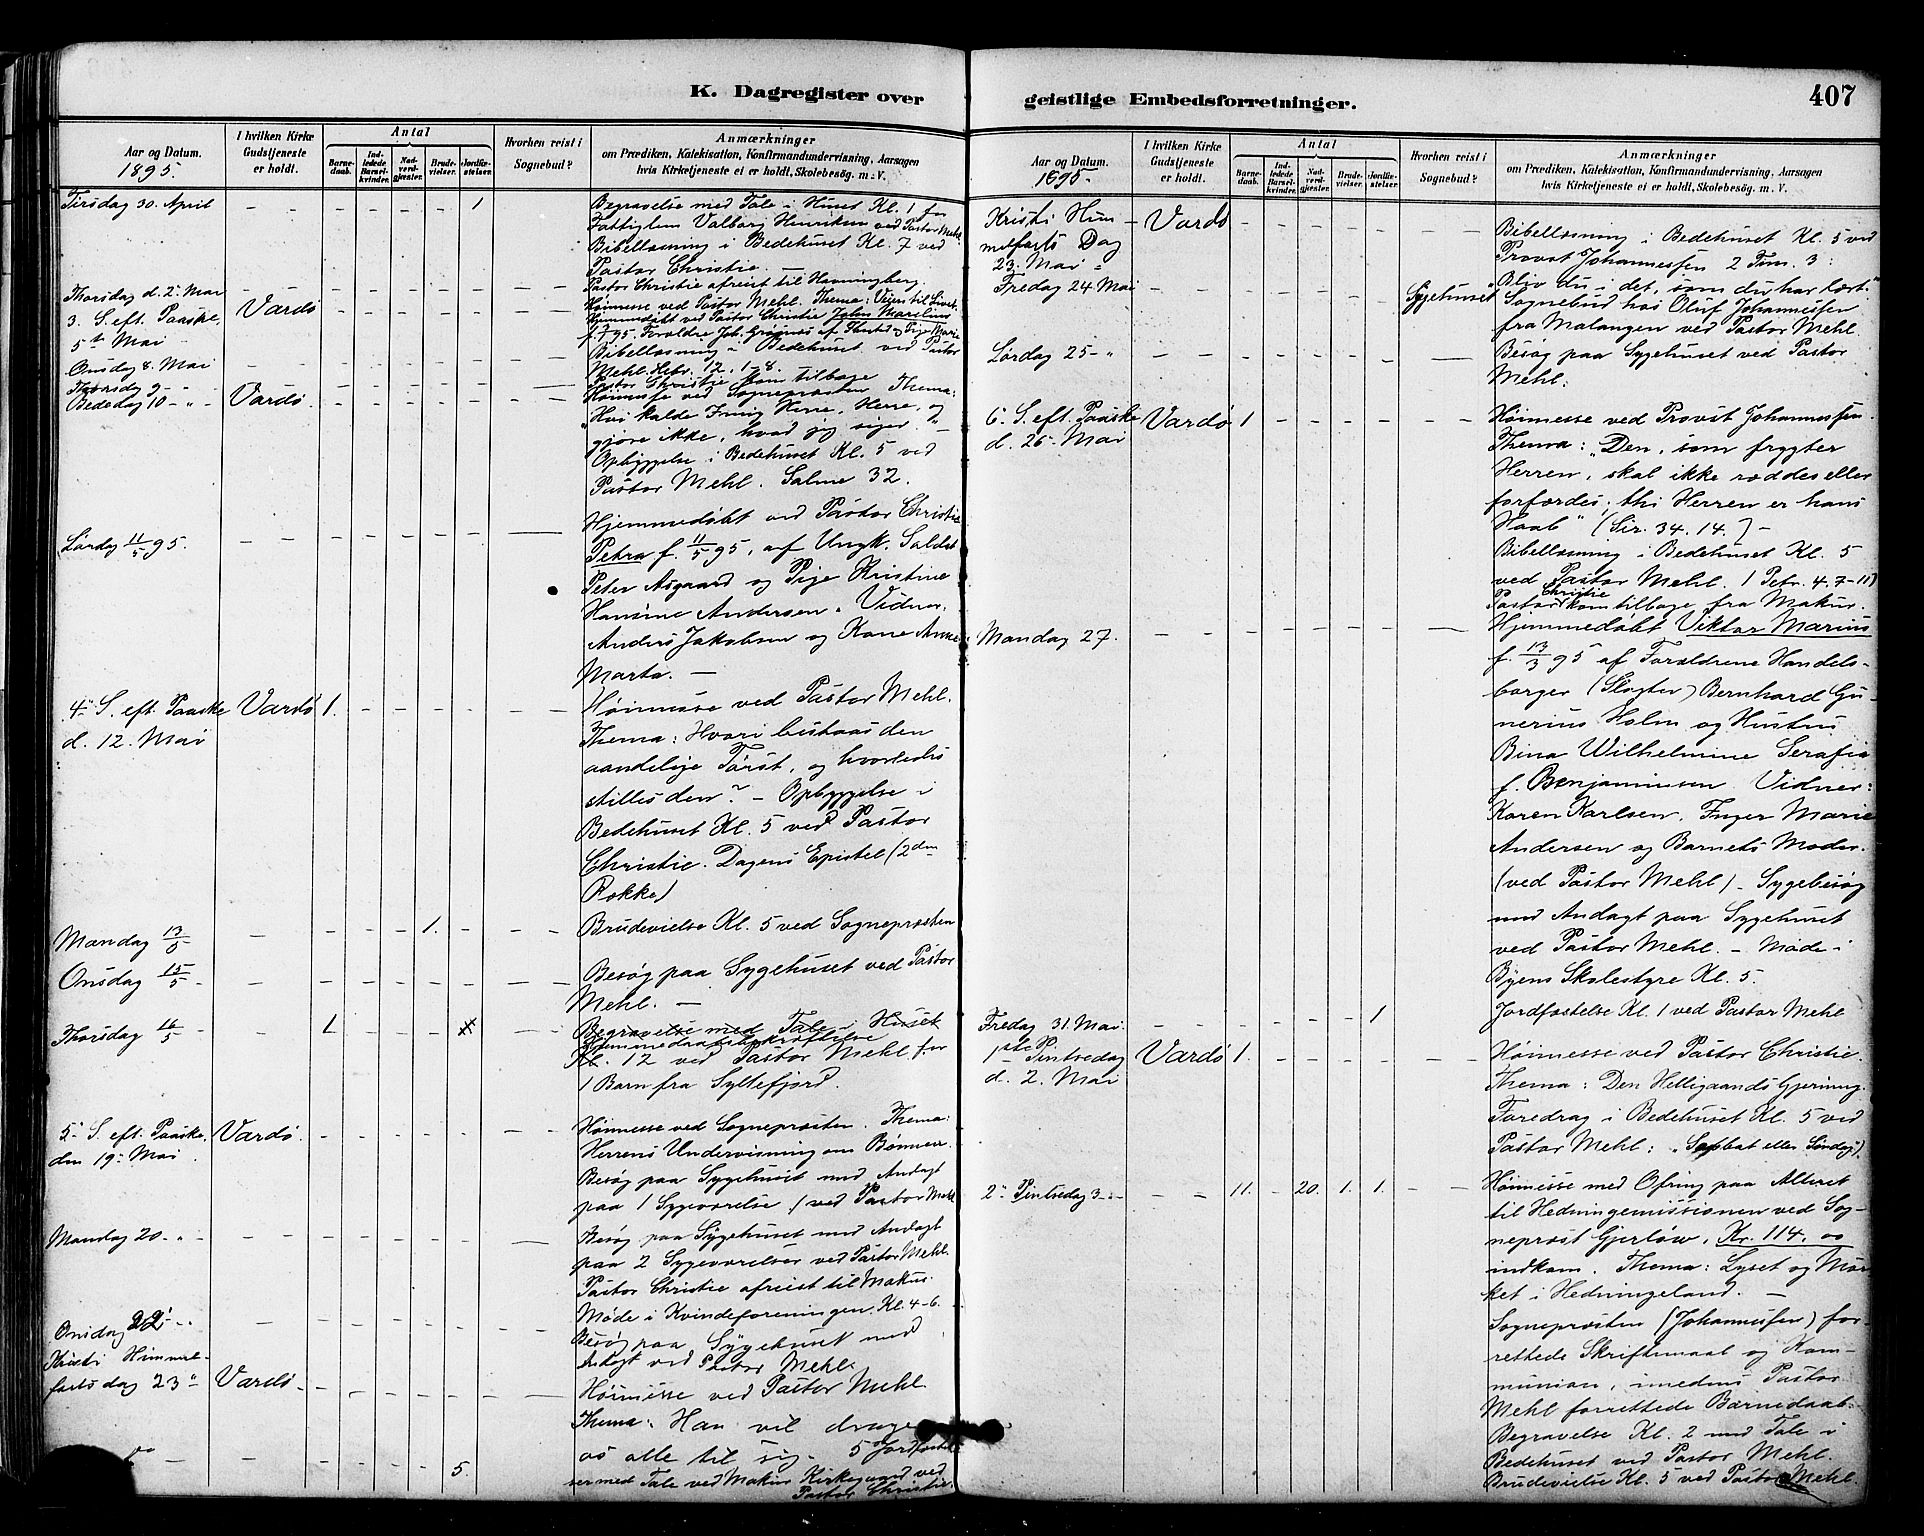 K. Dagregister over geistlige Embedsforretninger.
407
Aar og Datum.
1895.
I hvilken Kirke
Gudstjeneste
er holdt.
Antal
Barne-
daab.
Ind-
ledede
Barsel-
kvinder.
Nad-
verd-
gjester.
Brude-
vielser.
Jordfæ-
stelser.
Hvorhen reist i
Sognebud?
Anmærkninger
om Prædiken, Katekisation, Konfirmandundervisning, Aarsagen
hvis Kirketjeneste ei er holdt, Skolebesøg. m. V.
Tirsdag 30. April 1 Begravelse med Tale i Huset Kl. 1 for
Fattiglem Valborg Henriksen ved Pastor Mehl.
Bibellæsning i Bedehuset Kl. 7 ved
Pastor Christie. —
Thorsdag d. 2. Mai Pastor Christie afreist til Havningberg.
3. S. eft. Paaske, Vardø Høimesse ved Pastor Mehl. Thema: Veien til Livet.
5te Mai Hjemmedøbt ved Pastor Christie John Marelius
Forældre Joh. Grønnes af
Onsdag 8. Mai Bibellæsning i Bedehuset ved Pastor
Mehl. Hebr. 12, 1-8.
Thorsdag 9 - " - Pastor Christie kom tilbage
Bededag 10 - " - Vardø. Høimesse ved Sognepræsten Thema:
"Hvi kalde I mig Herre, Herre, og
gjøre ikke, hvad jeg siger." —
Opbyggelse i Bedehuset Kl. 5 ved
Pastor Mehl. Salme 32.
Lørdag 11/5 95. Hjemmedøbt ved Pastor Christie
Petra f. 11/5 95, af Ungk. Soldat
Peter Asgaard og Pige Kristine
Hansine Andersen. Vidner.
Anders Jakobsen og Kone Anne
Marta. —
4de S. eft. Paaske Vardø 1. Høimesse ved Pastor Mehl.
d. 12. Mai Thema: Hvori bestaar den
aandelige Tørst, og hvorledes
stilles den? — Opbyggelse i
Bedehuset Kl. 5 ved Pastor
Christie. Dagens Epistel (2den
Række)
Mandag 13/5 1. Brudevielse Kl. 5 ved Sognepræsten
Onsdag 15/5 Besøg paa Sygehuset ved Pastor
Mehl. —
Thorsdag 16/5 1 Begravelse med Tale i Huset
Hjemmedaabsbekræftelse
Kl. 12 ved Pastor Mehl for
1 Barn fra Syltefjord.
5. S. eft. Paaske. Vardø. Høimesse ved Sognepræsten. Thema:
den 19. Mai Herrens Undervisning om Bønnen.
Besøg paa Sygehuset med Andagt
paa 1 Sygeværelse / ved Pastor Mehl
Mandag 20 - " - Besøg paa Sygehuset med Andagt
paa 2 Sygeværelser ved Pastor Mehl.
Pastor Christie afreist til Makur.
Møde i Kvindeforeningen. Kl. 4-6.
Onsdag 22 - " Besøg paa Sygehuset med
Andagt ved Pastor Mehl.
Kristi Himmel-
fartsdag 23 " Vardø. Høimesse ved Pastor Mehl
Thema: Han vil drage
os alle til sig.
5. 5 Jordfæstel-
ser med Tale ved Makur Kirkegaard ved
Pastor Christie.
Aar og Datum.
1895.
I hvilken Kirke
Gudstjeneste
er holdt.
Antal
Barne-
daab.
Ind-
ledede
Barsel-
kvinder.
Nad-
verd-
gjester.
Brude-
vielser.
Jordfæ-
stelser.
Hvorhen reist i
Sognebud?
Anmærkninger
om Prædiken, Katekisation, Konfirmandundervisning, Aarsagen
hvis Kirketjeneste ei er holdt, Skolebesøg. m. V.
Kristi Him- Vardø
melfarts Dag Bibellæsning i Bedehuset Kl. 5 ved
23. Mai Provst Johannessen 2 Tim. 3:
"Bliv du i det, som du har lært."
Fredag 24. Mai Sygehuset Sognebud hos Oluf Johannessen
fra Malangen ved Pastor Mehl.
Lørdag 25 - " Besøg paa Sygehuset ved Pastor
Mehl.
6. S. eft. Paaske Vardø 1 Høimesse ved Provst Johannessen.
d. 26. Mai Thema: "Den, som frygter
Herren, skal ikke ræddes eller
forfærdes; thi Herren er hans
Haab" (Sir. 34. 14.) —
Bibellæsning i Bedehuset Kl. 5
ved Pastor Mehl. 1 Petr. 4. 7-11)
Pastor Christie kom tilbage fra Makur.
Mandag 27. Hjemmedøbt Viktor Marius
f. 13/3 95 af Forældrene Handels-
borger (Slagter) Bernhard Gu-
nerius Holm og Hustru
Bina Wilhelmine Serafia
f. Benjaminsen. Vidner:
Karen Karlsen, Inger Marie
Andersen og Barnets Moder.
(ved Pastor Mehl) — Sygebesøg
med Andagt paa Sygehuset
ved Pastor Mehl. — Møde i
Byens Skolestyre Kl. 5.
Fredag 31. Mai. 1 Jordfæstelse Kl. 1 ved Pastor Mehl
1ste Pintsedag Vardø 1. Høimesse ved Pastor Christie.
d. 2. Mai Thema: Den Helligaands Gjerning.
Foredrag i Bedehuset Kl. 5 ved
Pastor Mehl: "Sabbat eller Søndag").
2. Pintsedag 3 - " - 11. 20. 1. 1. Høimesse med Ofring paa Alteret
til Hedningemissionen ved Sog-
neprest Gjerløw, Kr. 114, 00
indkom. Thema: Lyset og Mør-
ket i Hedningeland. —
Sognepræsten (Johannessen) for-
rettede Skriftemaal og Kom-
munion, imedens Pastor
Mehl forrettede Barnedaab.
Begravelse Kl. 2 med Tale i
Bedehuset ved Pastor Mehl.
Brudevielse Kl. 5 ved Pastor Mehl.